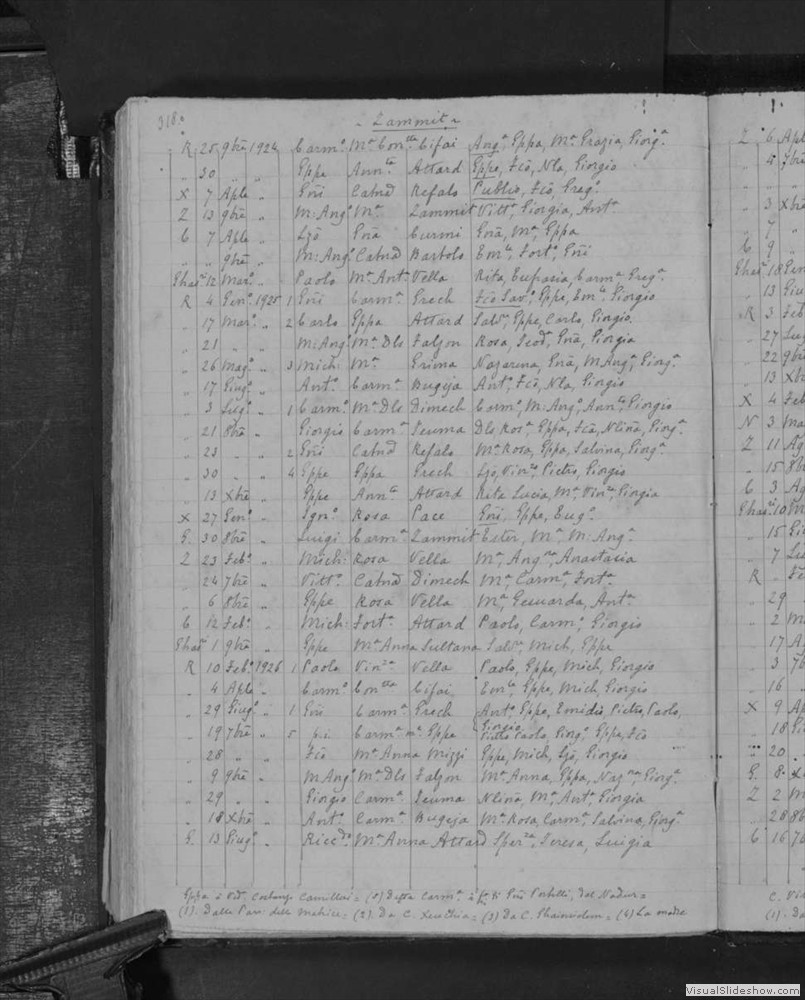 318.
- Zammit -
R 25 9bre 1924 Carm.o Ma Con.tta Cifai Ang.a, Eppa, Ma Grazia, Giorg.a
" 30 " " Eppe Ann.ta Attard Eppe, Fcō, Nla, Giorgio
X 7 Aple " Gñi Catnā Refalo Publio, Fcō, Greg.o
Z 13 9bre " M: Ang.o Ma Zammit Vitt.a, Giorgia, Ant.a
C 7 Aple " Ljō Gnā Curmi Gnā, Ma, Eppa
" " 9bre " M: Ang.o Catnā Bartolo Em.le, Fort.o, Gñi
Ghas.ri 12 Mar.o " Paolo Ma Ant.a Vella Rita, Eufrasia, Carm.a Greg.a
R 4 Gen.o 1925 1 Gñi Carm.a Grech Fcō Sav.o, Eppe, Em.le, Giorgio
" 17 Mar.o " 2 Carlo Eppa Attard Salv.e, Eppe, Carlo, Giorgio
" 21 " " M: Ang.o Ma Dls Falzon Rosa, Teod.a, Gnā, Giorgia
" 26 Mag.o " 3 Mich: Ma Grima Nazarena, Gnā, M Ang.a, Giorg.a
" 17 Giug.o " Ant.o Carm.a Bugeja Ant.o, Fcō, Nla, Giorgio
" 3 Lug.o " 1 Carm.o Ma Dls Dimech Carm.o, M: Ang.o, Ann.to, Giorgio
" 21 8bre " Giorgio Carm.a Scuma Dls Ros.a, Eppa, Fcā, Nlinā, Giorg.a
" 23 " " 2 Gñi Catnā Refalo Ma Rosa, Eppa, Salvina, Giorg.a
" 30 " " 4 Eppe Eppa Grech Ljō, Vin.zo, Pietro, Giorgio
" 13 Xbre " Eppe Ann.ta Attard Rita Lucia, Ma, Vin.za, Giorgia
X 27 Gen.o " Ign.o Rosa Pace Gñi, Eppe, Eug.o
G. 30 8bre " Luigi Carm.a Zammit Ester, Ma, M: Ang.a
Z 23 Feb.o " Mich: Rosa Vella Ma, Ang.na, Anastasia
" 24 7bre " Vitt.o Catnā Dimech Ma, Carm.a, Fort.a
" 6 8bre " Eppe Rosa Vella Ma, Genuarda, Ant.a
C 12 Feb.o " Mich: Fort.a Attard Paolo, Carm.o, Giorgio
Ghas.ri 1 9bre " Eppe Ma Anna Sultana Salv.e, Mich, Eppe
R 10 Feb.o 1926 1 Paolo Vin.za Vella Paolo, Eppe, Mich, Giorgio
" 4 Aple " Carm.o Con.tta Cifai Em.le, Eppe, Mich, Giorgio
" 29 Giug.o " 1 Gñi Carm.a Grech Ant.o, Eppe, Emidio, Pietro, Paolo,
Giorgio
" 19 7bre " 5 p.i. Carm.a ma Eppa Paolo, Giorg.o Eppe, Fcō
" 28 " " Fcō Ma Anna Mizzi Eppe, Mich, Ljō, Giorgio
" 9 9bre " M Ang.o Ma Dls Falzon Ma Anna, Eppa, Naz.na, Giorg.a
" 29 " " Giorgio Carm.a Scuma Nlinā, Ma, Ant.a, Giorgia
" 18 Xbre " Ant.o Carm.a Bugeja Ma Rosa, Carm.a, Salvina, Giorg.a
G. 13 Giug.o " Riccd.o Ma Anna Attard Sper.za, Teresa, Luigia
Eppa è Ved. Camilleri = (5) Detta Carm.a è di Gñi Portelli, del Nadur =
(1). Dalla Parr. della Matrice = (2). Da C. Xeuchia = (3) Da C. = (4) La madre
Z 6 Aple
" 4 7bre
" 3 Xbre
" 7
C 9
Ghas.ri 18 Gen
" 13 Giu
R 3 Feb
" 27 Lug
" 22 9bre
" 13 Xbre
X 4 Feb
N 3 Ma
Z 11 Ag
" 15 8bre
C 3 Ag
Ghas.ri 10
" 15 Giu
" 7 Lu
R " Fe
" 29
" 2 M
" 17 A
" 3 7b
" 16
X 9 Ap
" 18 G
" 20
G. 8 X
Z 2 M
" 28 8b
C 16 7b
(1). Da
VisualSlideshow.com